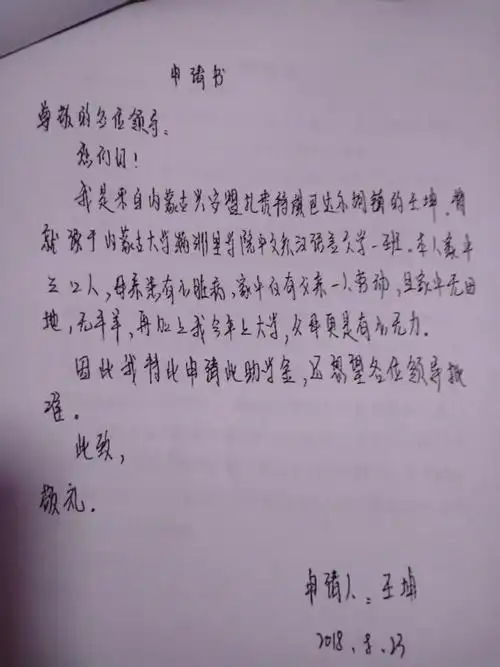 申请书
尊敬的各位领导:
您们日!
我是来自内蒙古兴安盟扎赉特旗巴达尔胡镇的王坤.曾
就读于内蒙古大学满洲里学院中文系汉语言文学一班.本人家中
三口人,母亲患有心脏病,家中仅有父亲一人劳动,且家中无田
地,无牛羊,再加上我今年上大学,父母更是有心无力.
因此我特此申请此助学金,还希望各位领导批
准.
此致,
敬礼.
申请人:王坤
2018.8.23